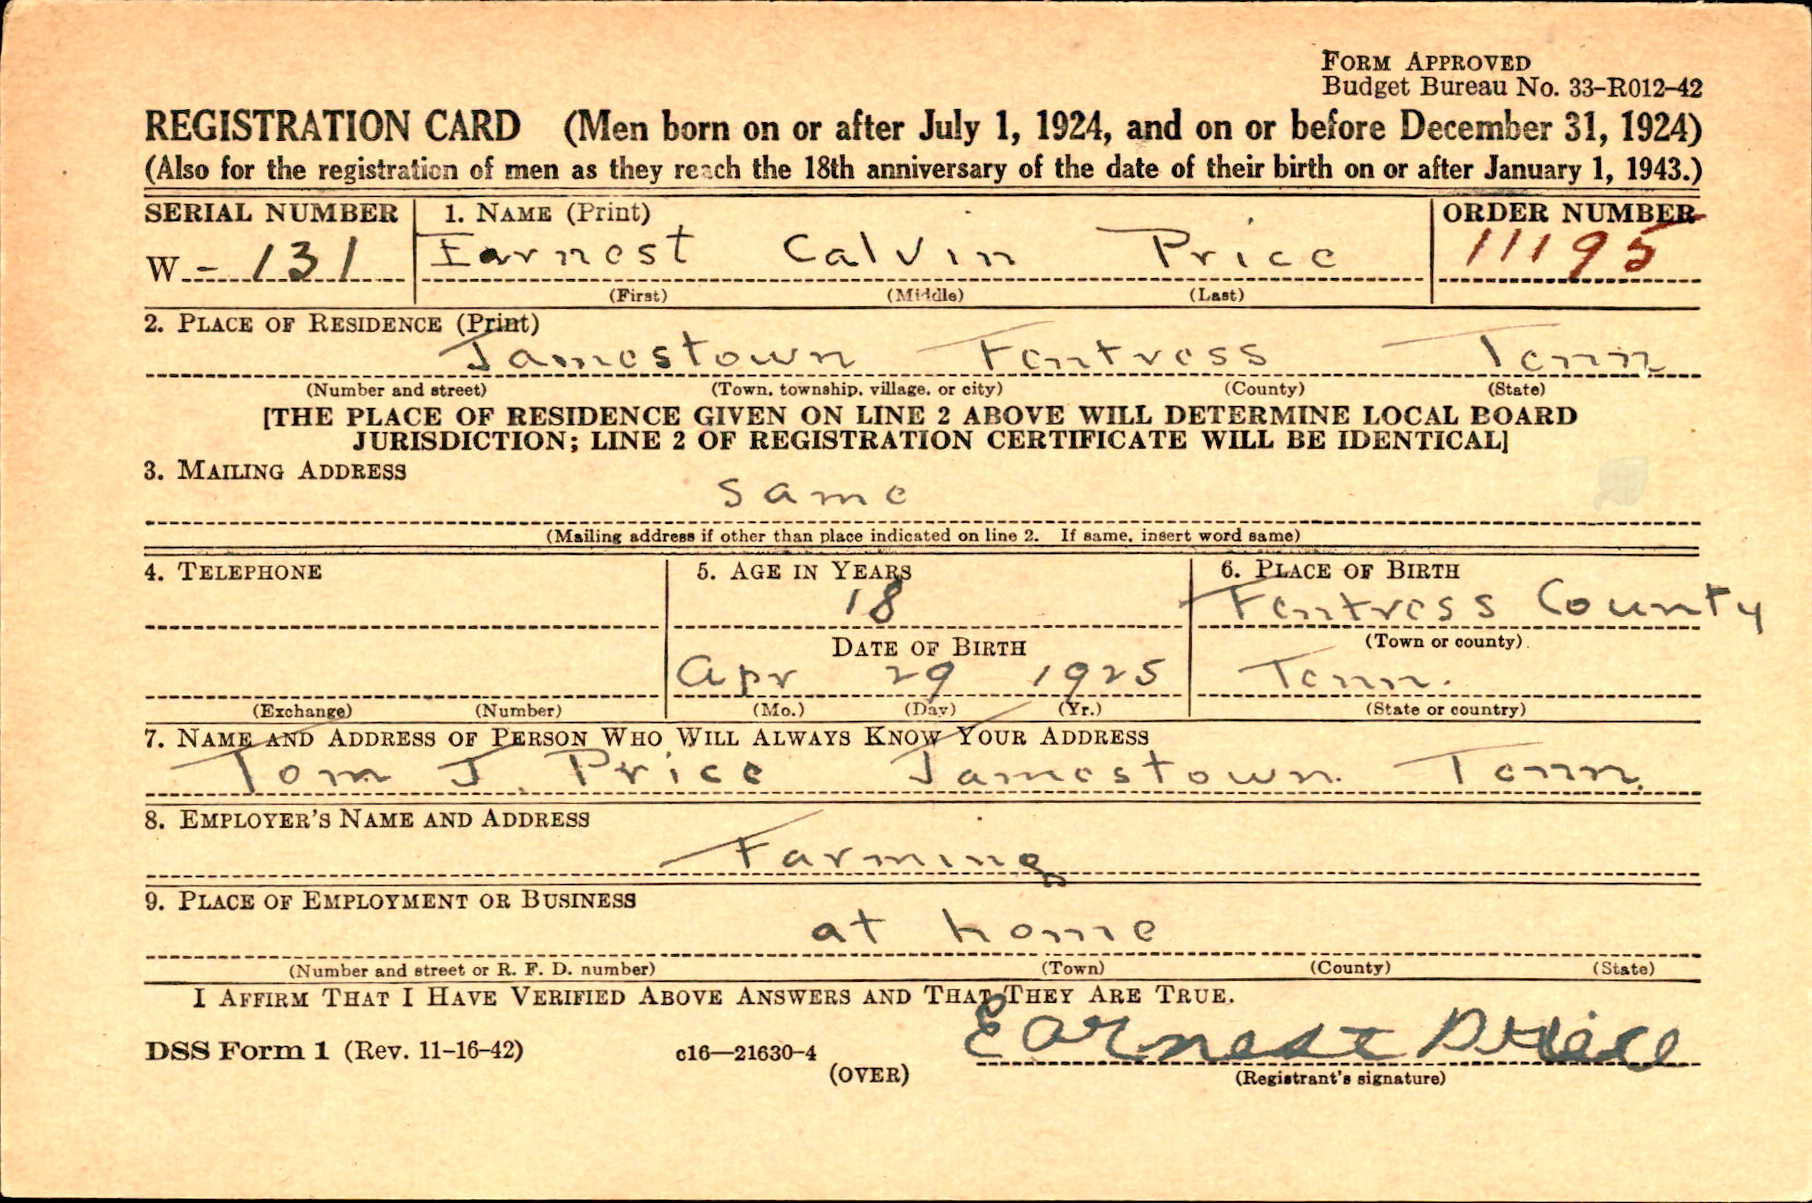 FORM APPROVED
Budget Bureau No. 33-R012-42
REGISTRATION CARD (Men born on or after July 1, 1924, and on or before December 31, 1924)
(Also for the registration of men as they reach the 18th anniversary of the date of their birth on or after January 1, 1943.)
SERIAL NUMBER 1. NAME (Print) ORDER NUMBER
W - 131 Earnest Calvin Price 11195
(First) (Middle) (Last)
2. PLACE OF RESIDENCE (Print)
Jamestown Fentress Tenn
(Number and street) (Town, township, village, or city) (County) (State)
[THE PLACE OF RESIDENCE GIVEN ON LINE 2 ABOVE WILL DETERMINE LOCAL BOARD
JURISDICTION; LINE 2 OF REGISTRATION CERTIFICATE WILL BE IDENTICAL]
3. MAILING ADDRESS
same
(Mailing address if other than place indicated on line 2. If same, insert word same)
4. TELEPHONE 5. AGE IN YEARS 6. PLACE OF BIRTH
18 Fentress County
DATE OF BIRTH (Town or county).
Apr 29 1925 Tenn.
(Exchange) (Number) (Mo.) (Day) (Yr.) (State or country)
7. NAME AND ADDRESS OF PERSON WHO WILL ALWAYS KNOW YOUR ADDRESS
Tom J. Price Jamestown. Tenn.
8. EMPLOYER'S NAME AND ADDRESS
Farming
9. PLACE OF EMPLOYMENT OR BUSINESS
at home
(Number and street or R. F. D. number) (Town) (County) (State)
I AFFIRM THAT I HAVE VERIFIED ABOVE ANSWERS AND THAT THEY ARE TRUE.
DSS Form 1 (Rev. 11-16-42) c16—21630-4 Earnest Price
(OVER) (Registrant's signature)